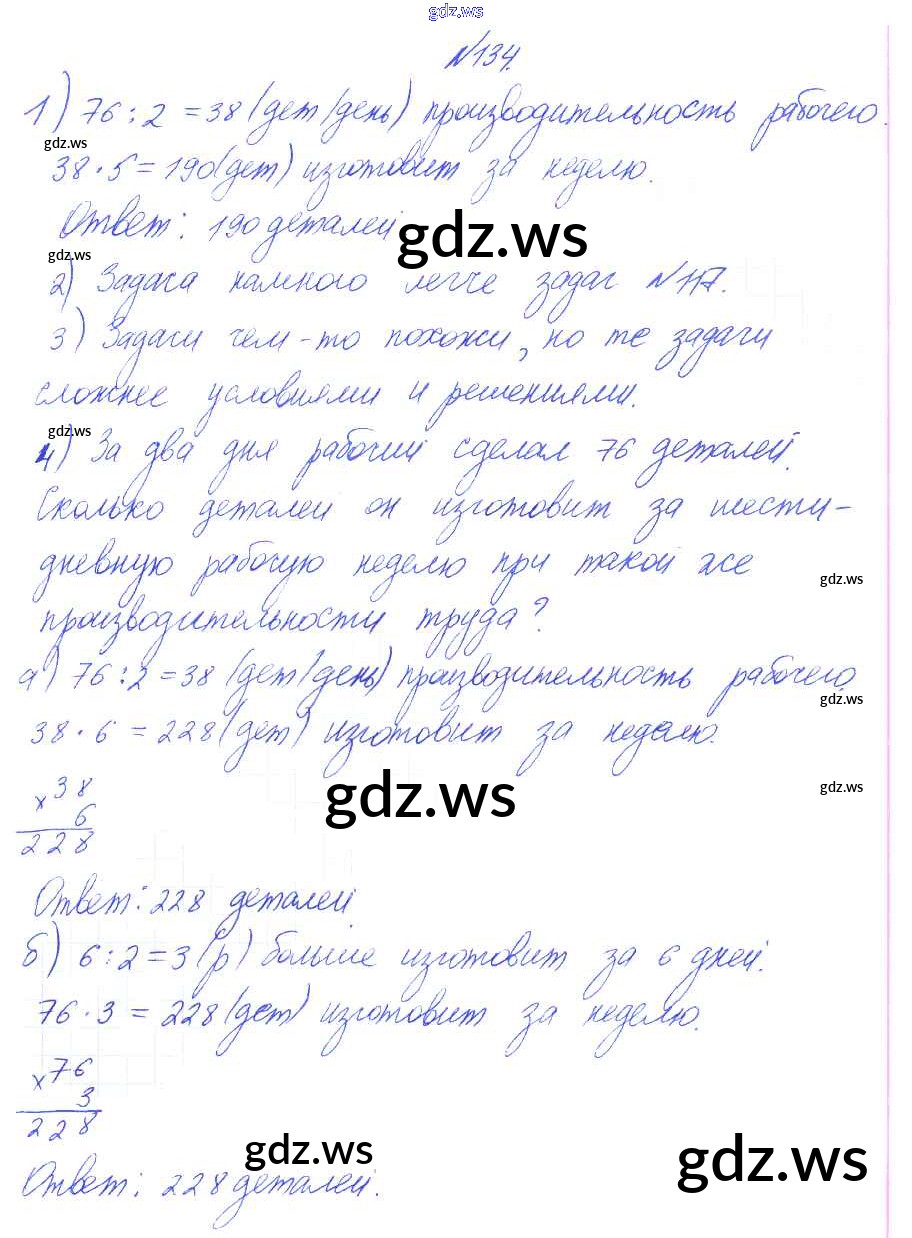 gdz.ws
№134.
1) 76 : 2 = 38 (дет/день) производительность рабочего.
gdz.ws
38 · 5 = 190 (дет) изготовит за неделю.
Ответ: 190 деталей
gdz.ws
gdz.ws
2) Задача намного легче задач №117.
3) Задачи чем-то похожи, но те задачи
сложнее условиями и решениями.
gdz.ws
4) За два дня рабочий сделал 76 деталей.
Сколько деталей он изготовит за шести-
дневную рабочую неделю при такой же
gdz.ws
производительности труда?
а) 76 : 2 = 38 (дет/день) производительность рабочего.
gdz.ws
38 · 6 = 228 (дет) изготовит за неделю.
gdz.ws
gdz.ws
× 38
6
228
Ответ: 228 деталей
б) 6 : 2 = 3 (р) больше изготовит за 6 дней.
76 · 3 = 228 (дет) изготовит за неделю.
× 76
3
228
gdz.ws
gdz.ws
Ответ: 228 деталей.